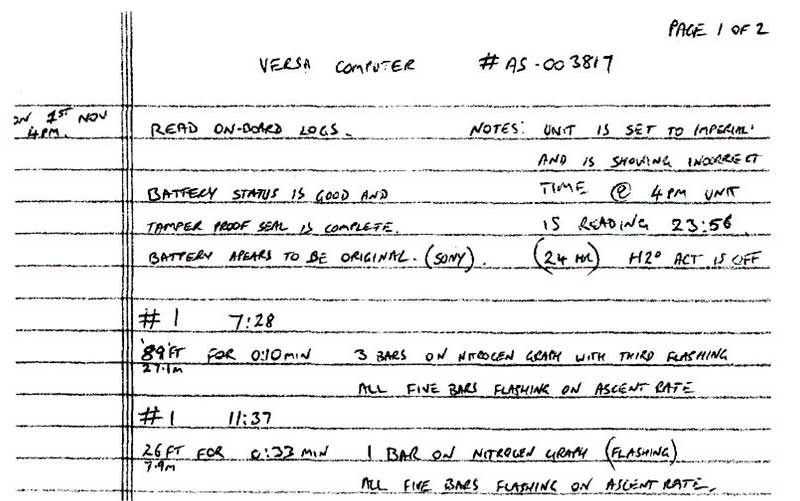 PAGE 1 OF 2
VERSA COMPUTER # AS-003817
ON 1ST NOV
4PM.
READ ON-BOARD LOGS.
NOTES: UNIT IS SET TO IMPERIAL
AND IS SHOWING INCORRECT
BATTERY STATUS IS GOOD AND
TIME @ 4PM UNIT
TAMPER PROOF SEAL IS COMPLETE.
IS READING 23:56
BATTERY APEARS TO BE ORIGINAL. (SONY).
(24 HR) H2O ACT IS OFF
# 1 7:28
89 FT FOR 0:10 MIN 3 BARS ON NITROGEN GRAPH WITH THIRD FLASHING
27.1m
ALL FIVE BARS FLASHING ON ASCENT RATE
# 1 11:37
26 FT FOR 0:33 MIN 1 BAR ON NITROGEN GRAPH (FLASHING)
7.9m
ALL FIVE BARS FLASHING ON ASCENT RATE.